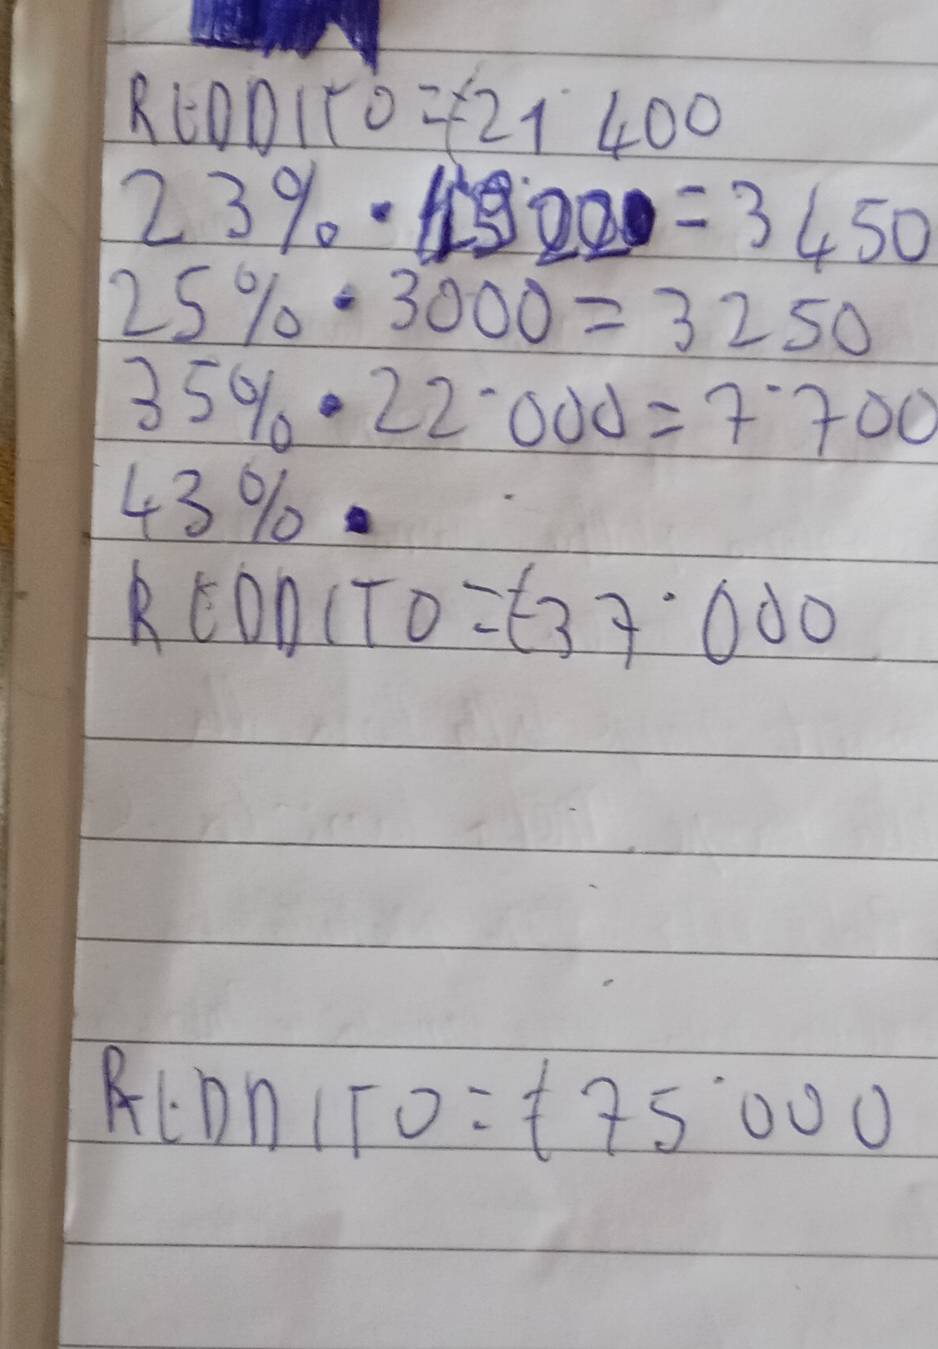 REDDITO = €21˙400
23% · 15˙000 = 3450
25% · 3000 = 3250
35% · 22˙000 = 7˙700
43% ·
REDDITO = €37˙000
REDDITO = €75˙000